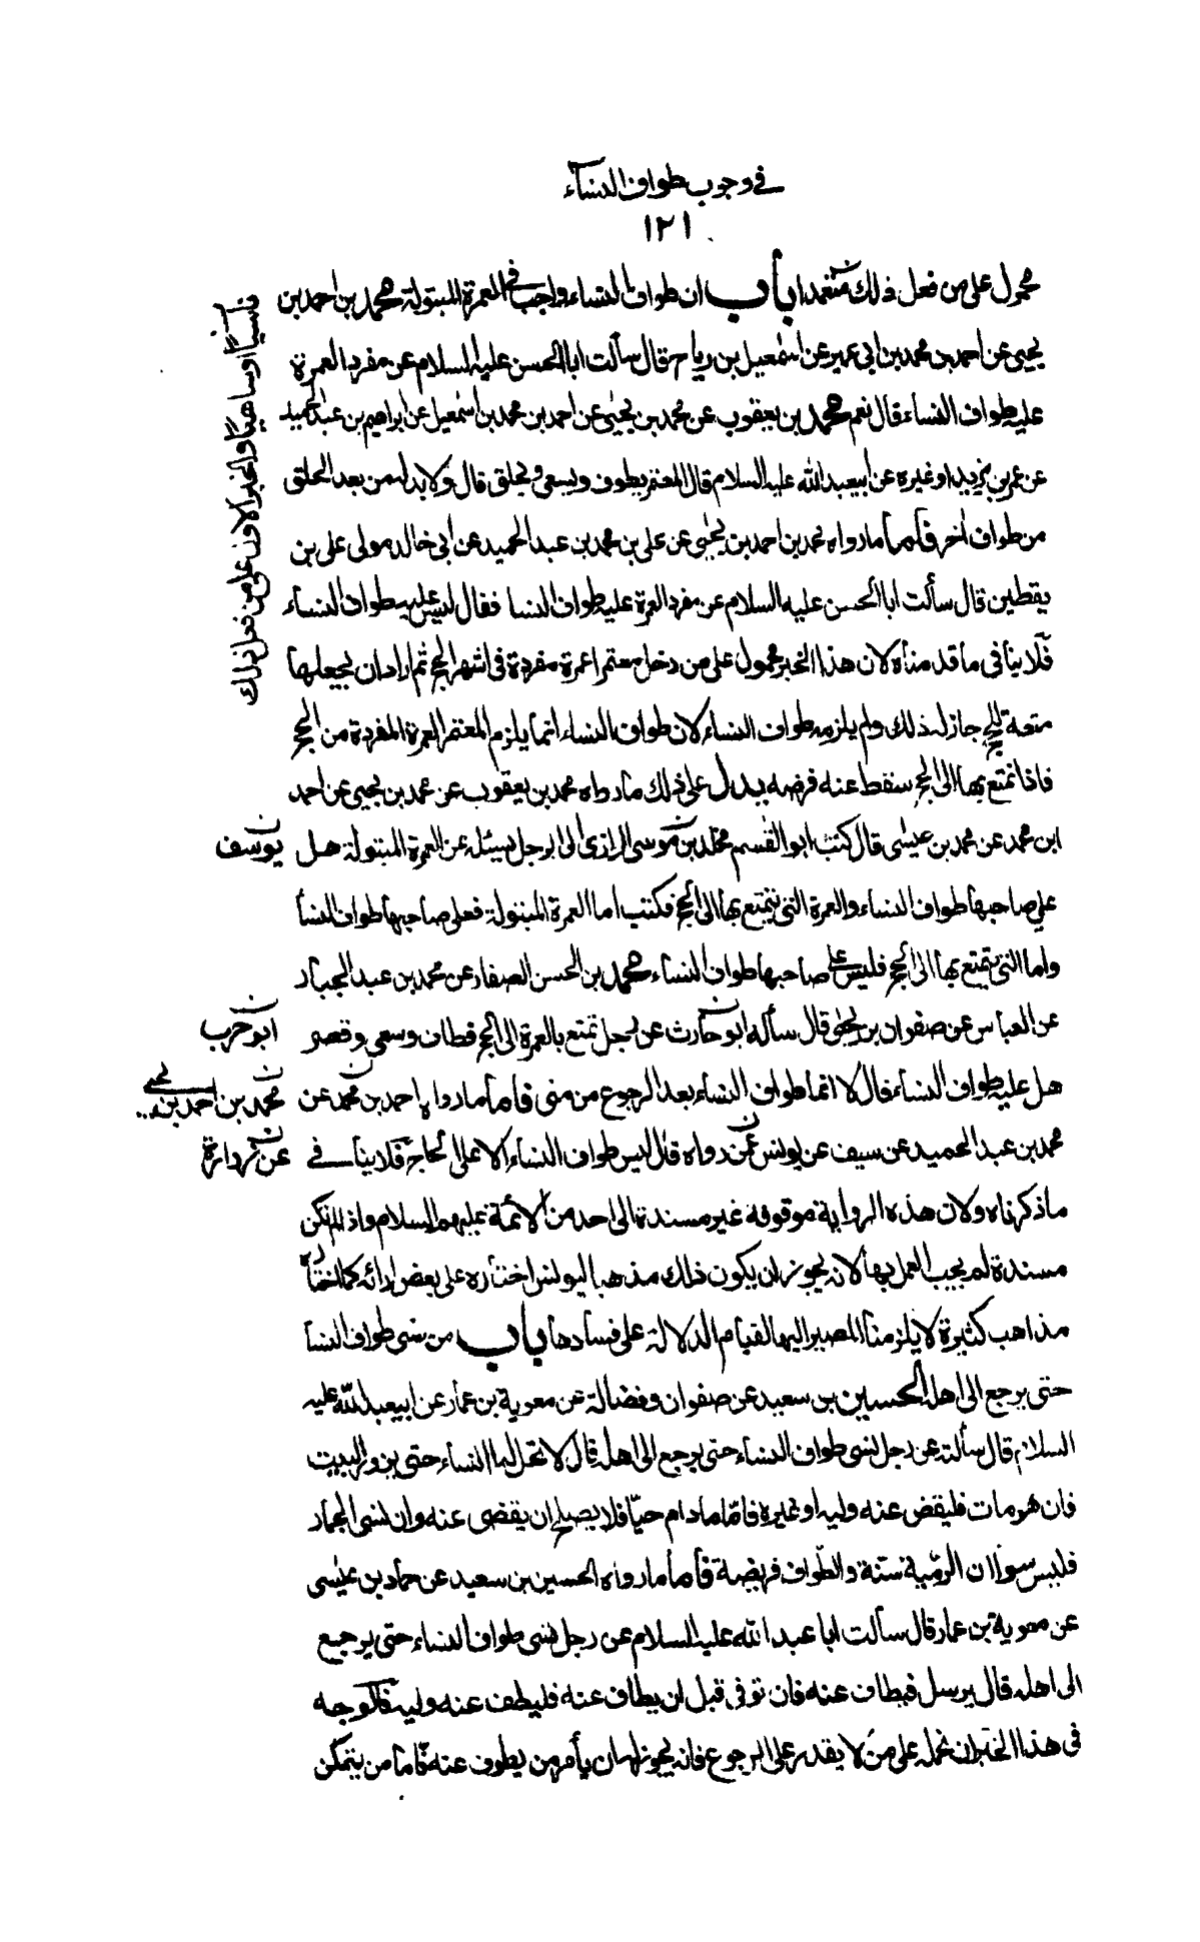 في وجوب طواف النساء
١٢١
محمول على من فعل ذلك متعمدا باب ان طواف النساء واجب في العمرة المبتولة محمد بن احمد بن
يحيى عن احمد بن محمد بن ابى عمير عن اسمعيل بن رياح قال سألت ابا الحسن عليه السلام عن مفرد العمرة
عليه طواف النساء قال نعم محمد بن يعقوب عن محمد بن يحيى عن احمد بن محمد بن اسمعيل عن ابراهيم بن عبد الحميد
عن عمر بن يزيد او غيره عن ابيعبد الله عليه السلام قال المعتمر يطوف ويسعى ويحلق قال ولا بد له من بعد الحلق
من طواف اخر فأما ما رواه محمد بن احمد بن يحيى عن على بن محمد بن عبد الحميد عن ابى خالد مولى على بن
يقطين قال سألت ابا الحسن عليه السلام عن مفرد العمرة عليه طواف النسا فقال ليس عليه طواف النساء
فلا ينافى ما قدمناه لان هذا الخبر محمول على من دخل معتمرا عمرة مفردة فى اشهر الحج ثم اراد ان يجعلها
متعة للحج جاز له ذلك ولم يلزمه طواف النساء لان طواف النساء انما يلزم المعتمر العمرة المفردة من الحج
فاذا تمتع بها الى الحج سقط عنه فرضه يدل على ذلك ما رواه محمد بن يعقوب عن محمد بن يحيى عن احمد
ابن محمد عن محمد بن عيسى قال كتب ابو القسم مخلد بن موسى الرازى الى الرجل يسئله عن العمرة المبتولة هل
يوسف
على صاحبها طواف النساء والعمرة التى يتمتع بها الى الحج فكتب اما العمرة المبتولة فعلى صاحبها طواف النسا
واما التى يتمتع بها الى الحج فليس على صاحبها طواف النساء محمد بن الحسن الصفار عن محمد بن عبد الجبار
عن العباس عن صفوان بن يحيى قال سأله ابو حارث عن رجل تمتع بالعمرة الى الحج فطاف وسعى وقصر
ابو حرب
هل عليه طواف النساء فقال لا انما طواف النساء بعد الرجوع من منى فأما ما رواه احمد بن محمد عن
محمد بن احمد بن يحيى
محمد بن عبد الحميد عن سيف عن يونس عمن رواه قال ليس طواف النساء الا على الحاج فلا ينافى
ما ذكرناه ولان هذه الرواية موقوفه غير مسندة الى احد من الائمة عليهم السلام واذا لم تكن
مسندة لم يجب العمل بها لانه يجوز ان يكون ذلك مذهبا ليونس اختاره على بعض ارائه كما اختاره
مذاهب كثيرة لا يلزمنا المصير اليها لقيام الدلالة على فسادها باب من نسى طواف النسا
حتى يرجع الى اهله الحسين بن سعيد عن صفوان وفضالة عن معوية بن عمار عن ابيعبد الله عليه
السلام قال سألته عن رجل نسى طواف النساء حتى يرجع الى اهله قال لا تحل له النساء حتى يزور البيت
فان هو مات فليقض عنه وليه او غيره فامّا ما دام حيّا فلا يصلح ان يقضى عنه وان نسى الجمار
فليس سوا ان الرمية سنة والطواف فريضة فأما ما رواه الحسين بن سعيد عن حماد بن عيسى
عن معوية بن عمار قال سألت ابا عبد الله عليه السلام عن رجل نسى طواف النساء حتى يرجع
الى اهله قال يرسل فيطاف عنه فان توفى قبل ان يطاف عنه فليطف عنه وليه فالوجه
فى هذا الخبر ان نحمله على من لا يقدر على الرجوع فانه يجوز له ان يأمر من يطوف عنه فاما من يتمكن
ناسيا او ساهيا والخبر الاول على من فعل ذلك